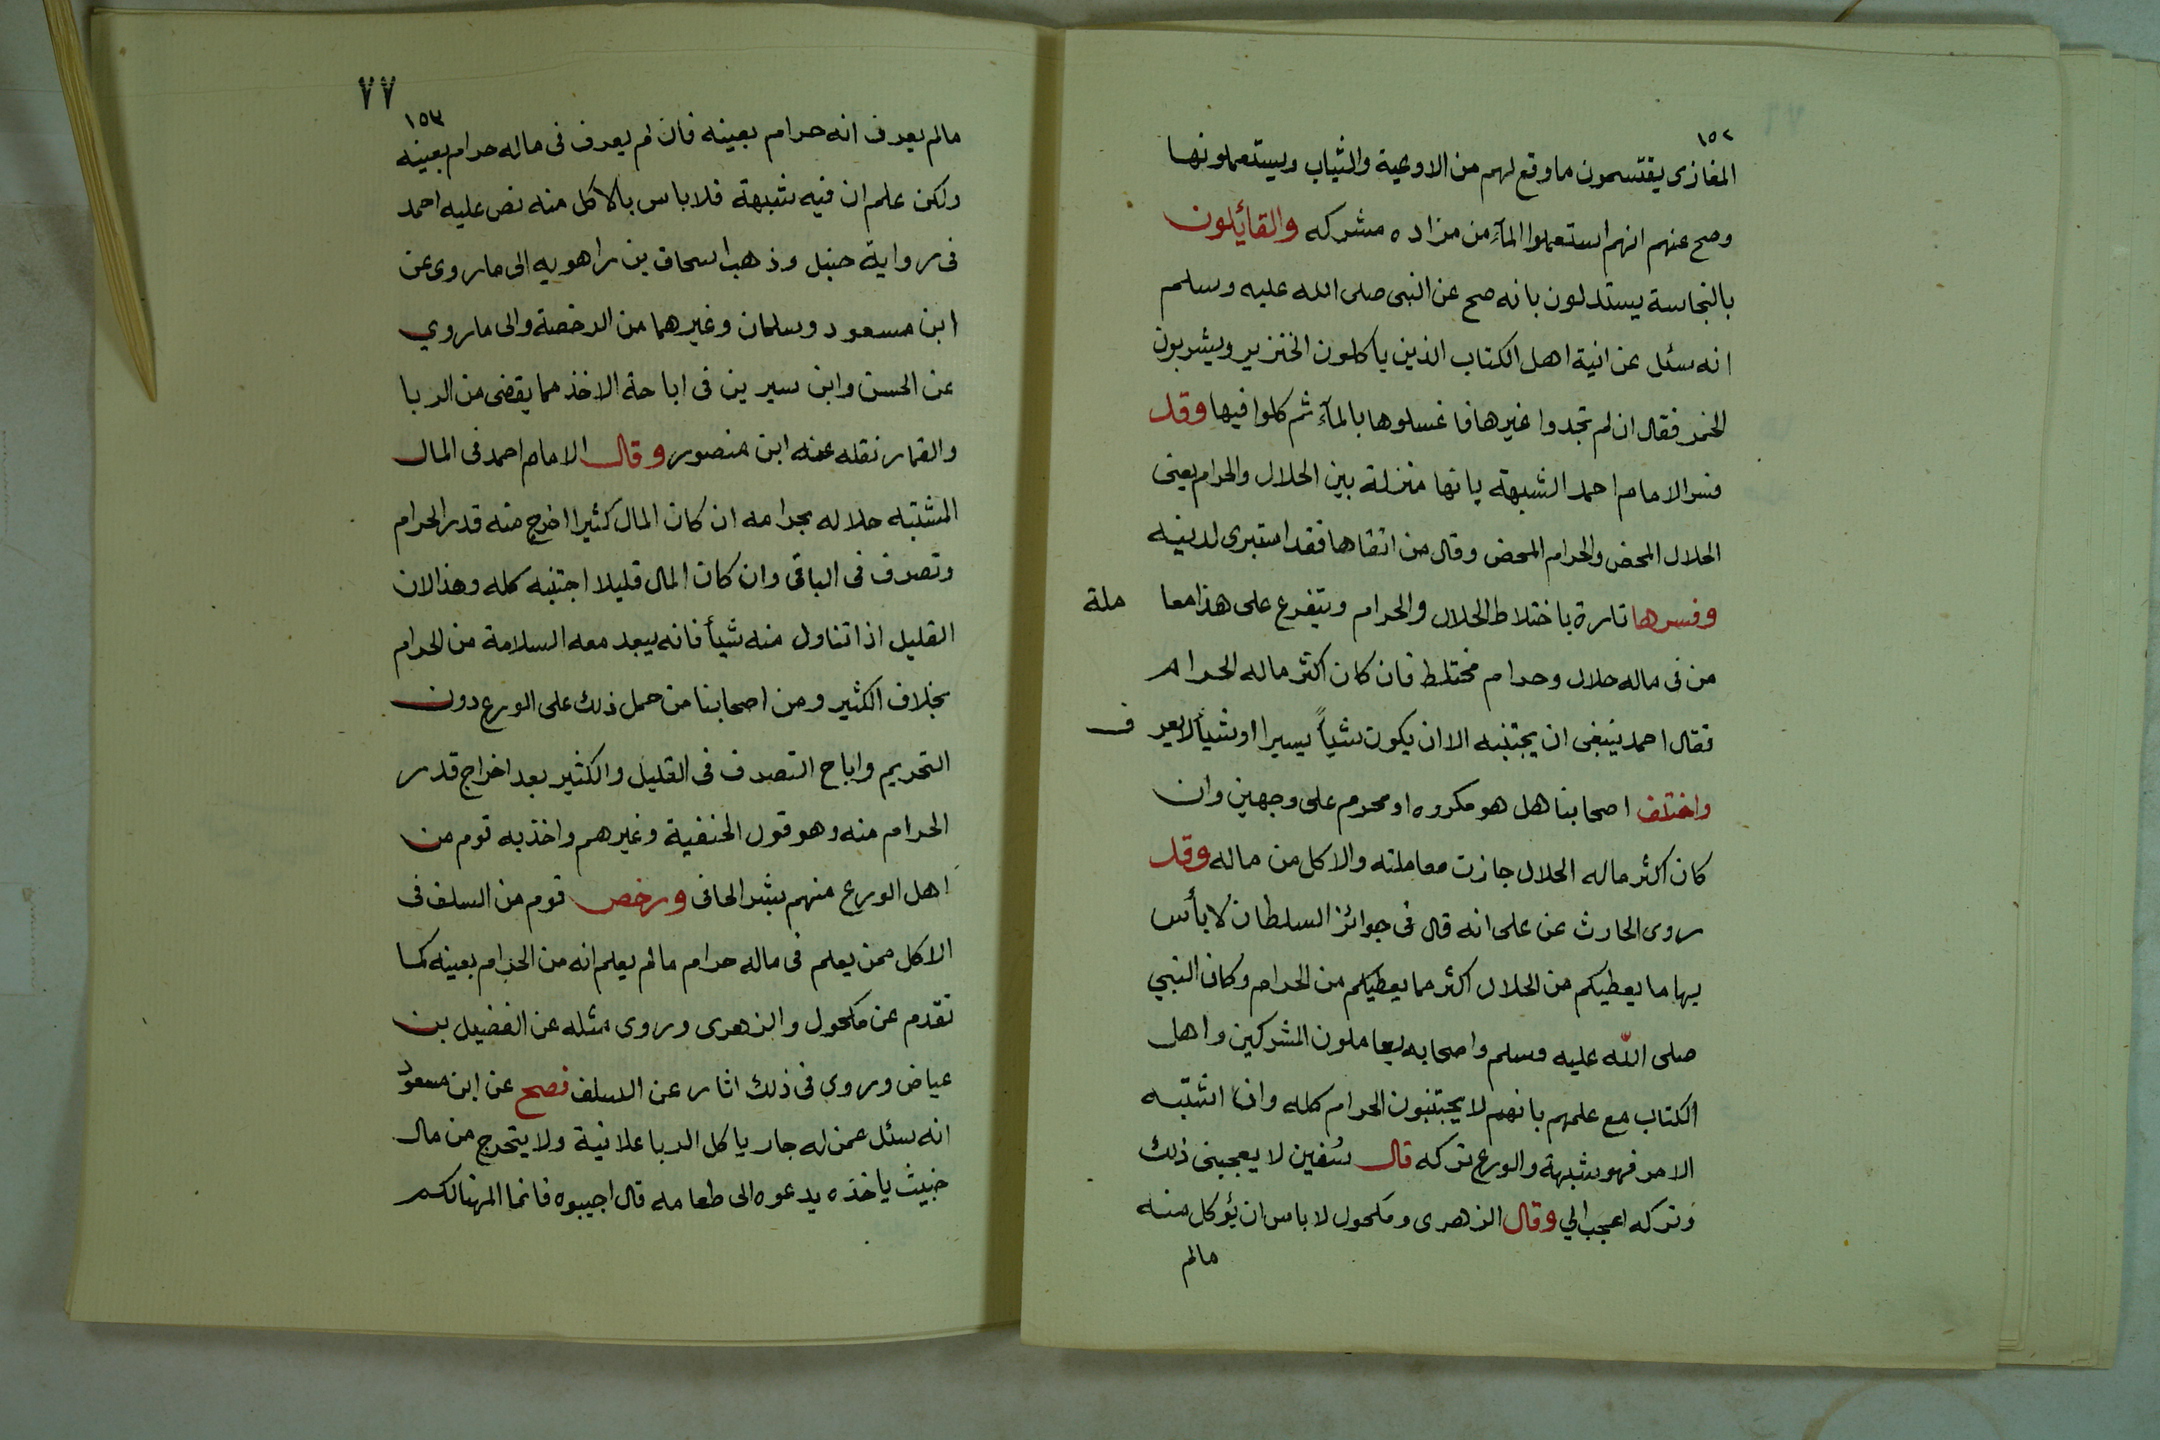 ١٥٢
المغازى يقتسمون ما وقع لهم من الاوعية والثياب ويستعملونها
وصح عنهم انهم استعملوا المآء من مزاده مشركه والقائلون
بالنجاسة يستدلون بانه صح عن النبى صلى الله عليه وسلم
انه سئل عن انية اهل الكتاب الذين ياكلون الخنزير ويشربون
الخمر فقال ان لم تجدوا غيرها فاغسلوها بالمآء ثم كلوا فيها وقد
فسر الامام احمد الشبهة بانها منزلة بين الحلال والحرام يعنى
الحلال المحض والحرام المحض وقال من اتقاها فقد استبرى لدينه
وفسرها تارة باختلاط الحلال والحرام ويتفرع على هذا معا ملة
من فى ماله حلال وحرام مختلط فان كان اكثر ماله الحرام
فقال احمد ينبغى ان يجتنبه الا ان يكون شيأً يسيرا او شيأ لا يعر ف
واختلف اصحابنا هل هو مكروه او محرم على وجهين وان
كان اكثر ماله الحلال جازت معاملته والاكل من ماله وقد
روى الحارث عن على انه قال فى جوائز السلطان لا بأس
بها ما يعطيكم من الحلال اكثر مما يعطيكم من الحرام وكان النبي
صلى الله عليه وسلم واصحابه يعاملون المشركين واهل
الكتاب مع علمهم بانهم لا يجتنبون الحرام كله وان اشتبه
الامر فهو شبهة والورع تركه قال سفين لا يعجبنى ذلك
وتركه اعجب الي وقال الزهرى ومكحول لا باس ان يؤكل منه
مالم
٧٧
١٥٣
مالم يعرف انه حرام بعينه فان لم يعرف فى ماله حرام بعينه
ولكن علم ان فيه شبهة فلا باس بالاكل منه نص عليه احمد
فى رواية حنبل وذهب اسحاق بن راهويه الى ما روى عن
ابن مسعود وسلمان وغيرهما من الرخصة والى ما روي
عن الحسن وابن سيرين فى اباحة الاخذ مما يقضى من الربا
والقمار نقله عنه ابن منصور وقال الامام احمد فى المال
المشتبه حلاله بحرامه ان كان المال كثيرا اخرج منه قدر الحرام
وتصرف فى الباقى وان كان المال قليلا اجتنبه كله وهذا لان
القليل اذا تناول منه شيأ فانه يبعد معه السلامة من الحرام
بخلاف الكثير ومن اصحابنا من حمل ذلك على الورع دون
التحريم واباح التصرف فى القليل والكثير بعد اخراج قدر
الحرام منه وهو قول الحنفية وغيرهم واخذ به قوم من
اهل الورع منهم بشر الحافى ورخص قوم من السلف فى
الاكل ممن يعلم فى ماله حرام مالم يعلم انه من الحرام بعينه كما
تقدم عن مكحول والزهرى وروى مثله عن الفضيل بن
عياض وروي فى ذلك اثار عن السلف فصح عن ابن مسعود
انه سئل عمن له جار ياكل الربا علانية ولا يتحرج من مال
خبيث ياخذه يدعوه الى طعامه قال اجيبوه فانما المهنا لكم